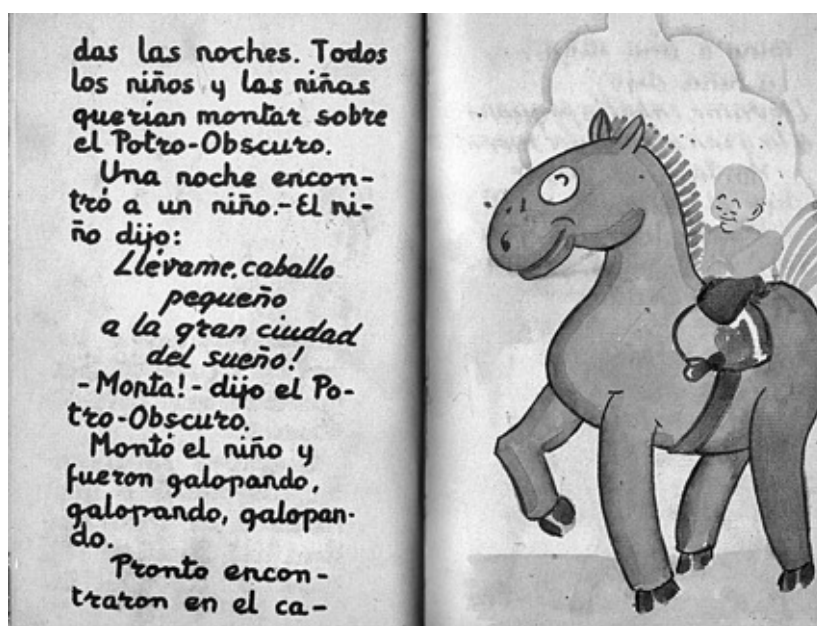 das las noches. Todos
los niños y las niñas
querían montar sobre
el Potro-Obscuro.
Una noche encon-
tró a un niño.-El ni-
ño dijo:
Llévame, caballo
pequeño
a la gran ciudad
del sueño!
-Monta!- dijo el Po-
tro-Obscuro.
Montó el niño y
fueron galopando,
galopando, galopan-
do.
Pronto encon-
traron en el ca-